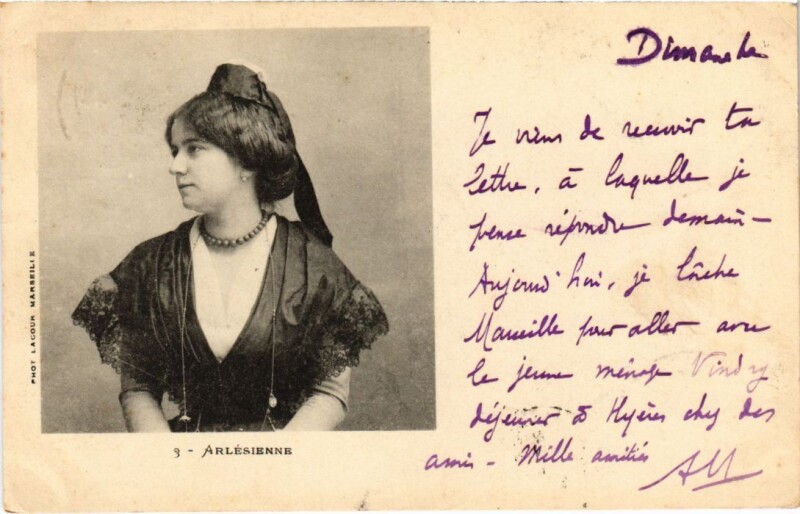 Dimanche
Je viens de recevoir ta
lettre, à laquelle je
pense répondre demain -
Aujourd'hui, je lâche
Marseille pour aller avec
le jeune ménage Vindry
déjeuner à Hyères chez des
amis - Mille amitiés
PHOT LACOUR MARSEILLE
3 - ARLÉSIENNE